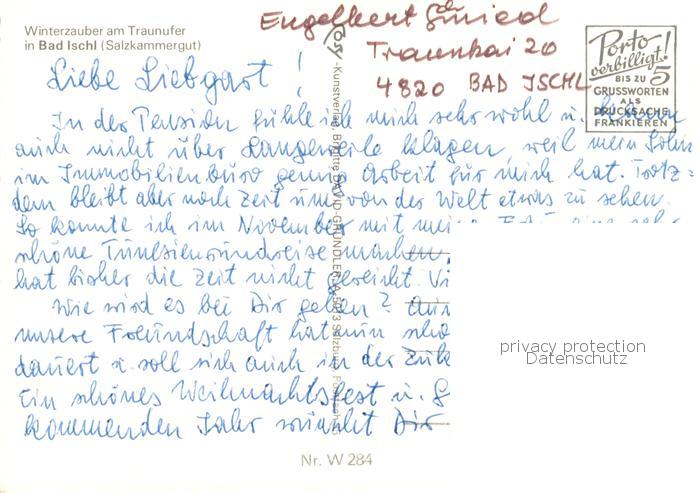 Winterzauber am Traunufer
in Bad Ischl (Salzkammergut)
Engelbert
Traunkai 20
4820 BAD ISCHL
Porto
verbilligt!
BIS ZU 5
GRUSSWORTEN
ALS
DRUCKSACHE
FRANKIEREN
Liebe Liebgart!
In der Pension fühle ich mich sehr wohl u.
auch nicht über Langeweile klagen, weil mein Sohn
im Immobilienbüro genug Arbeit für mich hat. Trotz=
dem bleibt aber noch Zeit um von der Welt etwas zu sehen.
So konnte ich im November mit
schöne Tunesienrundreise machen,
hat bisher die Zeit nicht gereicht.
Wie wird es bei Dir gehen?
unsere Freundschaft hat nun
dauert u. soll sich auch in der
Ein schönes Weihnachtsfest u.
kommenden Jahr wünscht Dir
privacy protection
Datenschutz
Nr. W 284